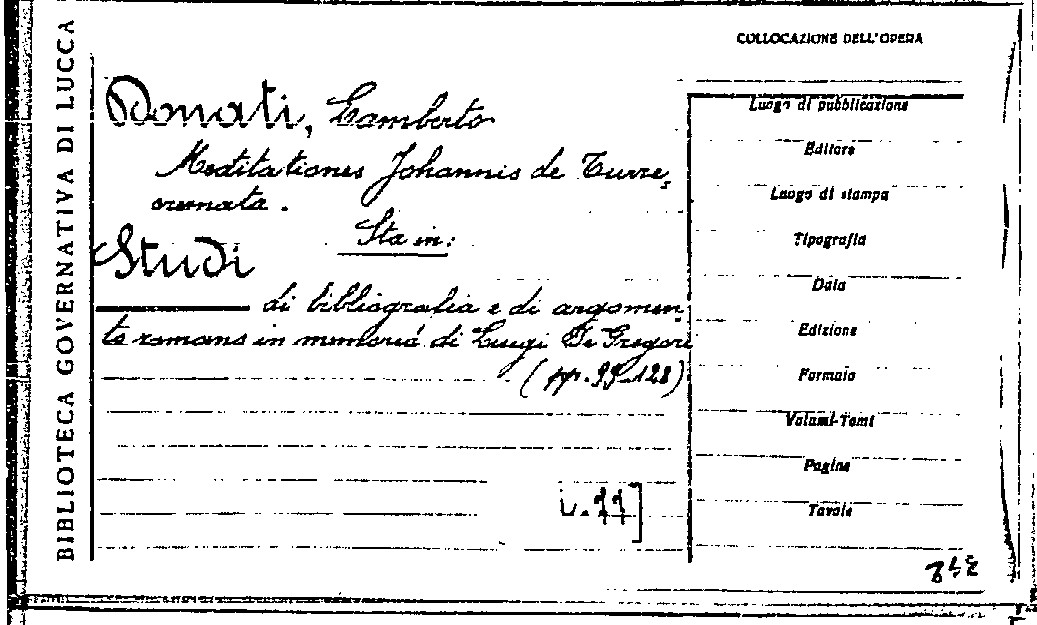 BIBLIOTECA GOVERNATIVA DI LUCCA
COLLOCAZIONE DELL'OPERA
Donati, Lamberto
Meditationes Johannis de Turre,
cremata.
Sta in:
Studi
di bibliografia e di argomen,
to romano in memoria di Luigi De Gregori
(pp. 99-128)
Luogo di pubblicazione
Editore
Luogo di stampa
Tipografia
Data
Edizione
Formato
Volumi-Tomi
Pagine
Tavole